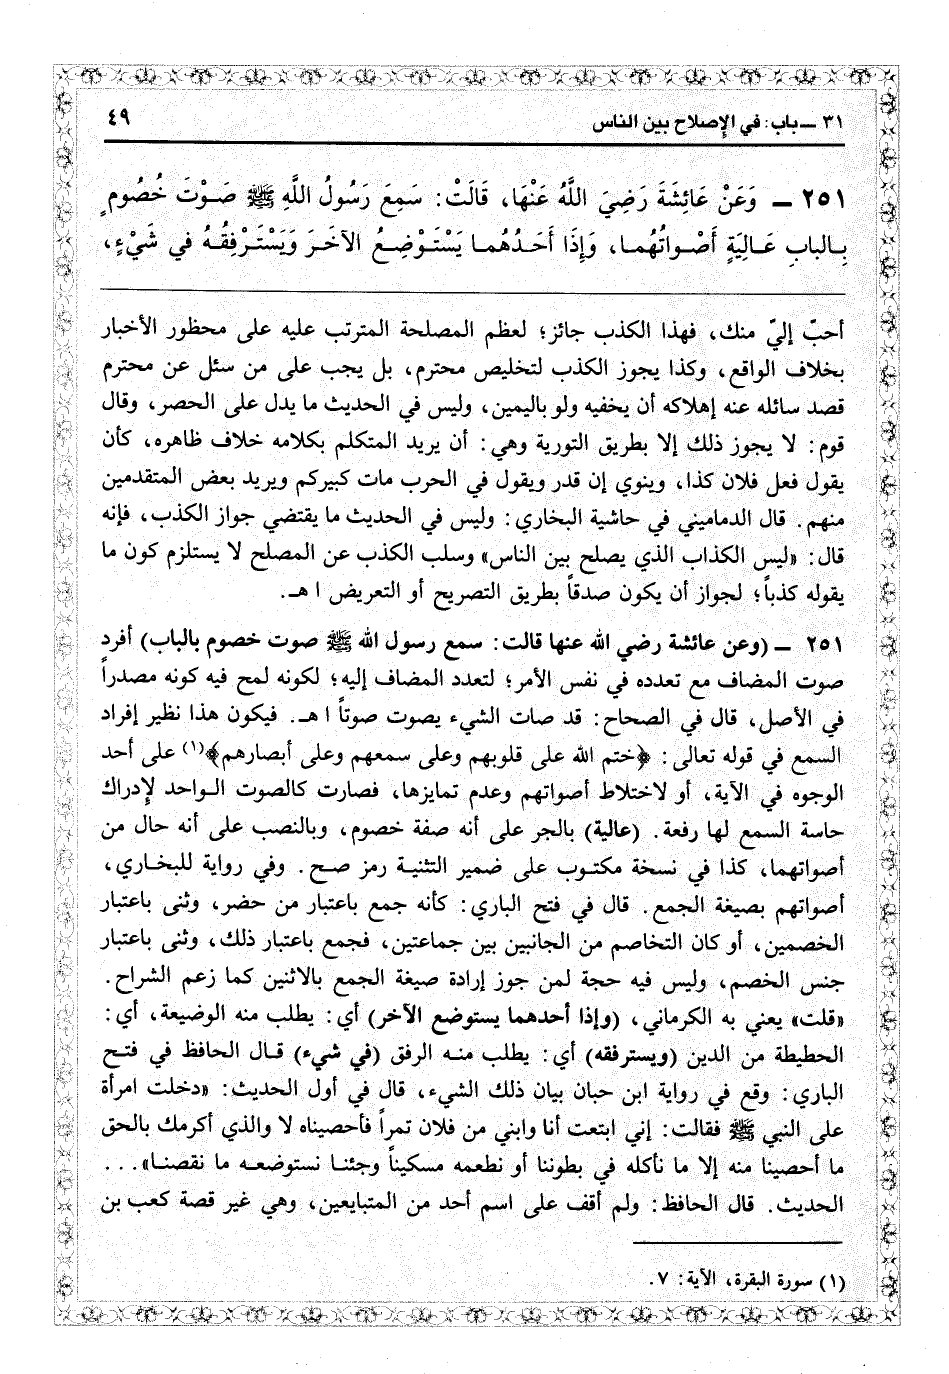 ٣١ ــ باب: في الإصلاح بين الناس ٤٩
٢٥١ ــ وَعَنْ عَائِشَةَ رَضِيَ اللَّهُ عَنْهَا، قَالَتْ: سَمِعَ رَسُولُ اللَّهِ ﷺ صَوْتَ خُصُومٍ
بِالبابِ عَالِيَةٍ أَصْوَاتُهُما، وَإِذَا أَحَدُهُما يَسْتَوْضِعُ الآخَرَ وَيَسْتَرْفِقُهُ في شَيْءٍ،
أحبّ إليّ منك، فهذا الكذب جائز؛ لعظم المصلحة المترتب عليه على محظور الأخبار
بخلاف الواقع، وكذا يجوز الكذب لتخليص محترم، بل يجب على من سئل عن محترم
قصد سائله عنه إهلاكه أن يخفيه ولو باليمين، وليس في الحديث ما يدل على الحصر، وقال
قوم: لا يجوز ذلك إلا بطريق التورية وهي: أن يريد المتكلم بكلامه خلاف ظاهره، كأن
يقول فعل فلان كذا، وينوي إن قدر ويقول في الحرب مات كبيركم ويريد بعض المتقدمين
منهم. قال الدماميني في حاشية البخاري: وليس في الحديث ما يقتضي جواز الكذب، فإنه
قال: «ليس الكذاب الذي يصلح بين الناس» وسلب الكذب عن المصلح لا يستلزم كون ما
يقوله كذباً؛ لجواز أن يكون صدقاً بطريق التصريح أو التعريض ا هـ.
٢٥١ ــ (وعن عائشة رضي الله عنها قالت: سمع رسول الله ﷺ صوت خصوم بالباب) أفرد
صوت المضاف مع تعدده في نفس الأمر؛ لتعدد المضاف إليه؛ لكونه لمح فيه كونه مصدراً
في الأصل، قال في الصحاح: قد صات الشيء يصوت صوتاً ا هـ. فيكون هذا نظير إفراد
السمع في قوله تعالى: ﴿ختم الله على قلوبهم وعلى سمعهم وعلى أبصارهم﴾(١) على أحد
الوجوه في الآية، أو لاختلاط أصواتهم وعدم تمايزها، فصارت كالصوت الواحد لإدراك
حاسة السمع لها رفعة. (عالية) بالجر على أنه صفة خصوم، وبالنصب على أنه حال من
أصواتهما، كذا في نسخة مكتوب على ضمير التثنية رمز صح. وفي رواية للبخاري،
أصواتهم بصيغة الجمع. قال في فتح الباري: كأنه جمع باعتبار من حضر، وثنى باعتبار
الخصمين، أو كان التخاصم من الجانبين بين جماعتين، فجمع باعتبار ذلك، وثنى باعتبار
جنس الخصم، وليس فيه حجة لمن جوز إرادة صيغة الجمع بالاثنين كما زعم الشراح.
«قلت» يعني به الكرماني، (وإذا أحدهما يستوضع الآخر) أي: يطلب منه الوضيعة، أي:
الحطيطة من الدين (ويسترفقه) أي: يطلب منه الرفق (في شيء) قال الحافظ في فتح
الباري: وقع في رواية ابن حبان بيان ذلك الشيء، قال في أول الحديث: «دخلت امرأة
على النبي ﷺ فقالت: إني ابتعت أنا وابني من فلان تمراً فأحصيناه لا والذي أكرمك بالحق
ما أحصينا منه إلا ما نأكله في بطوننا أو نطعمه مسكيناً وجئنا نستوضعه ما نقصنا»...
الحديث. قال الحافظ: ولم أقف على اسم أحد من المتبايعين، وهي غير قصة كعب بن
(١) سورة البقرة، الآية: ٧.